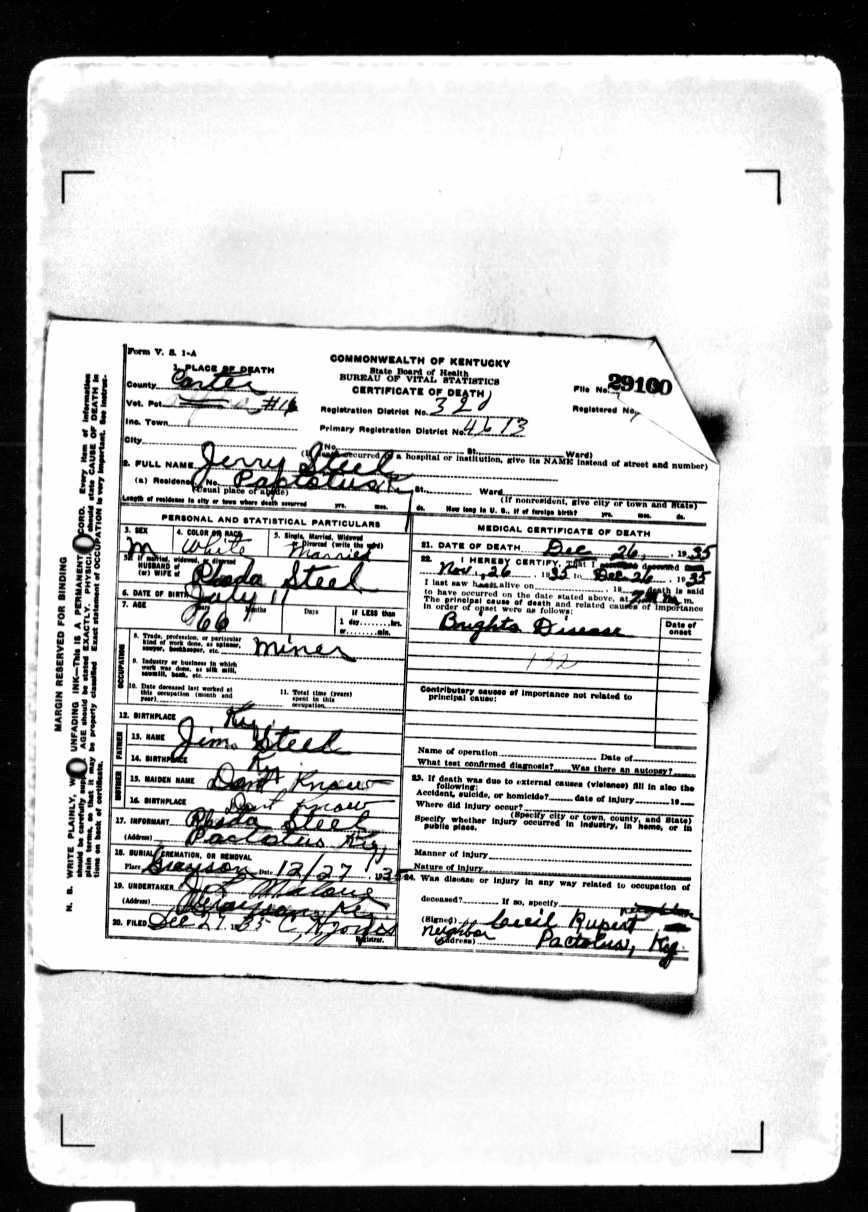 MARGIN RESERVED FOR BINDING
N. B. WRITE PLAINLY, UNFADING INK—THIS IS A PERMANENT RECORD. Every item of information
should be carefully AGE should be stated EXACTLY. should state CAUSE OF DEATH in
plain terms, so that it may be properly classified. Exact statement of OCCUPATION is very important. See instruc-
tions on back of certificate.
Form V. S. 1-A
COMMONWEALTH OF KENTUCKY
State Board of Health
BUREAU OF VITAL STATISTICS
CERTIFICATE OF DEATH
File No. 29100
Registered No.
1. PLACE OF DEATH
County Carter
Vot. Pct. #16
Inc. Town
City
Registration District No. 320
Primary Registration District No. 4613
No. St. Ward)
(If death occurred in a hospital or institution, give its NAME instead of street and number)
2. FULL NAME Jerry Steel
(a) Residence. No. Pactolus Ky St. Ward
(Usual place of abode) (If nonresident, give city or town and State)
Length of residence in city or town where death occurred yrs. mos. ds. How long in U. S., if of foreign birth? yrs. mos. ds.
PERSONAL AND STATISTICAL PARTICULARS
3. SEX M
4. COLOR OR RACE White
5. Single, Married, Widowed or Divorced (write the word) Married
5a. If married, widowed, or divorced
HUSBAND of
(or) WIFE of Rhoda Steel
6. DATE OF BIRTH July 11
7. AGE Years 66 Months Days If LESS than
1 day hrs.
or min.
OCCUPATION
8. Trade, profession, or particular
kind of work done, as spinner,
sawyer, bookkeeper, etc. Miner
9. Industry or business in which
work was done, as silk mill,
sawmill, bank, etc.
10. Date deceased last worked at
this occupation (month and
year)
11. Total time (years)
spent in this
occupation
12. BIRTHPLACE Ky.
FATHER
13. NAME Jim Steel
14. BIRTHPLACE Ky
MOTHER
15. MAIDEN NAME Dont Know
16. BIRTHPLACE Dont Know
17. INFORMANT Rhoda Steel
(Address) Pactolus Ky.
18. BURIAL, CREMATION, OR REMOVAL
Place Grayson Date 12/27, 1935
19. UNDERTAKER Malone
(Address) Grayson, Ky.
20. FILED Dec 27, 35 Jones
Registrar.
MEDICAL CERTIFICATE OF DEATH
21. DATE OF DEATH Dec 26, 1935
22. I HEREBY CERTIFY, That I attended deceased from
Nov. 26, 1935 to Dec 26, 1935
I last saw h alive on 19 death is said
to have occurred on the date stated above, at m.
The principal cause of death and related causes of importance
in order of onset were as follows:
Date of
onset
Brights Disease
132
Contributory causes of importance not related to
principal cause:
Name of operation Date of
What test confirmed diagnosis? Was there an autopsy?
23. If death was due to external causes (violence) fill in also the
following:
Accident, suicide, or homicide? date of injury 19
Where did injury occur?
(Specify city or town, county, and State)
Specify whether injury occurred in industry, in home, or in
public place.
Manner of injury
Nature of injury
24. Was disease or injury in any way related to occupation of
deceased? If so, specify
(Signed) Cecil Rupert
Neighbor
(Address) Pactolus, Ky.